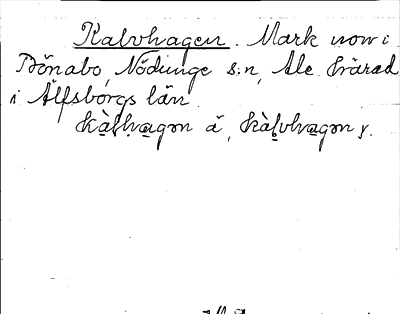 Kalvhagen. Mark now i
Bönabo, Nödinge s:n, Ale härad
i Älfsborgs län.
kàlhagǝn ä, kàlvhagǝn y.